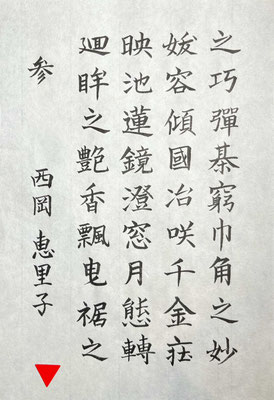 之巧彈棊窮巾角之妙
媛容傾國冶咲千金荘
映池蓮鏡澄窓月態轉
廻眸之艶香飄曳裾之
参 西岡恵里子